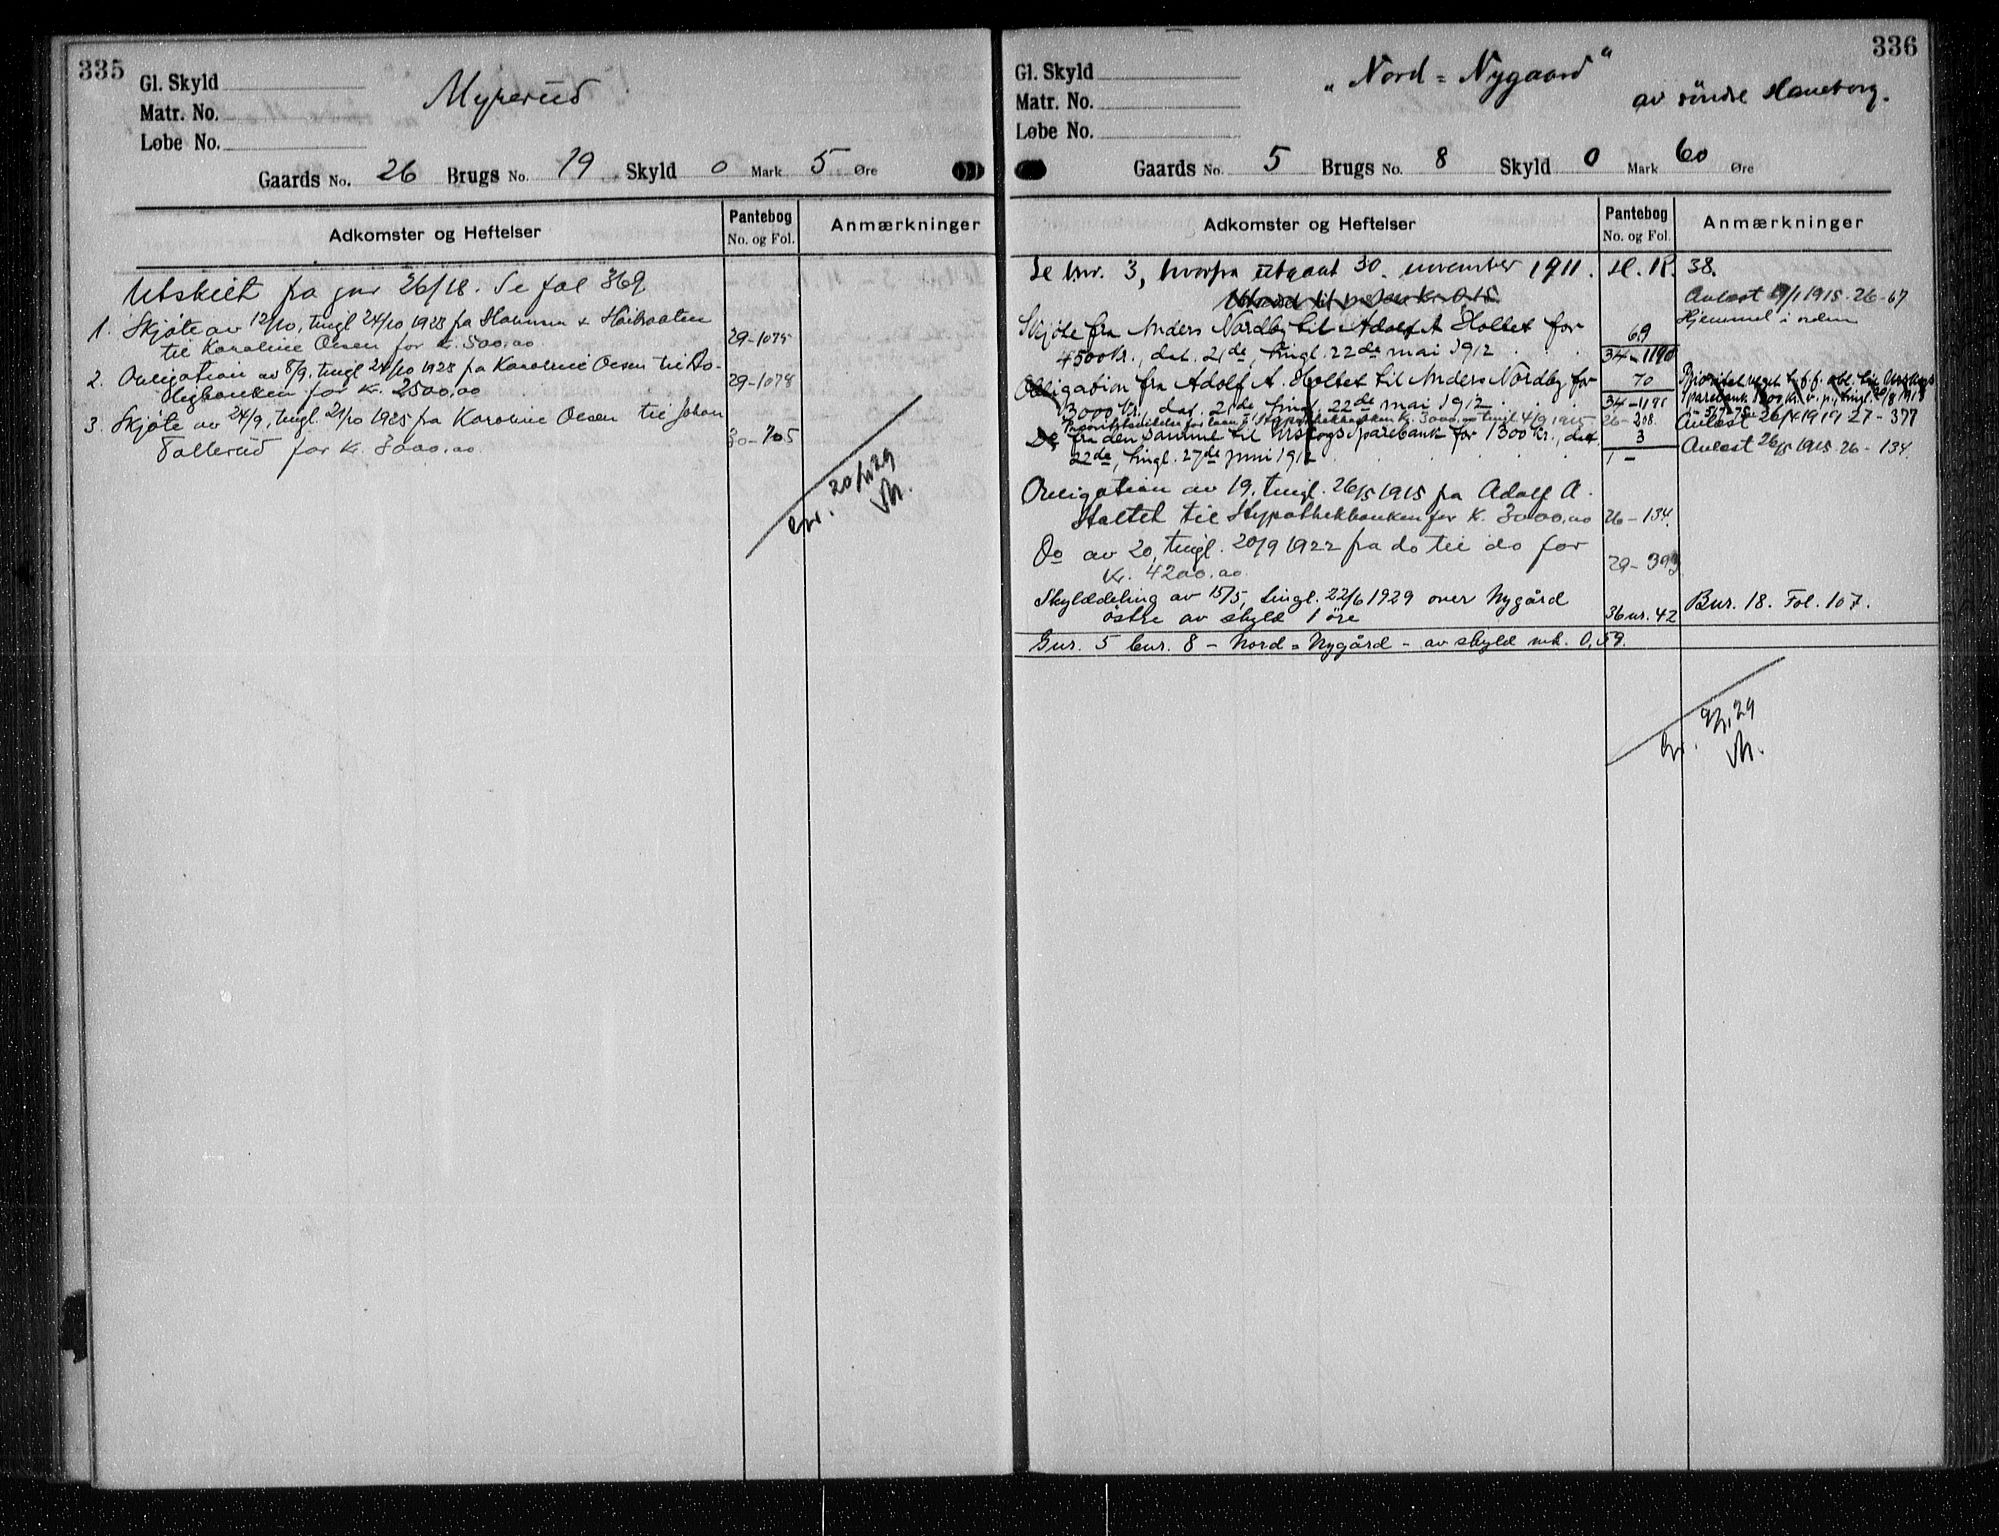 335
Gl. Skyld
Matr. No.
Løbe No.
Myrerud
Gaards No. 26 Brugs No. 19 Skyld 0 Mark 5 Øre
Adkomster og Heftelser
Pantebog
No. og Fol.
Anmærkninger
Utskilt fra gnr 26/18. Se fol 369
1. Skjøte av 12/10, tingl 24/10 1923 fra
til Karoline Olsen for K. 500,00 29-1075
2. Obligation av 8/9, tingl 24/10 1923 fra Karoline Olsen til Bo-
ligbanken for Kr. 2500,00 29-1078
3. Skjøte av 24/9, tingl. 21/10 1925 fra Karoline Olsen til Johan
Tollerud for Kr. 3000,00 30-705
20/11 29
336
Gl. Skyld
Matr. No.
Løbe No.
"Nord=Nygaard"
av søndre Haneborg.
Gaards No. 5 Brugs No. 8 Skyld 0 Mark 60 Øre
Adkomster og Heftelser
Pantebog
No. og Fol.
Anmærkninger
Se bnr. 3, hvorfra utgaat 30. november 1911. H. R. 38.
Avlæst 1915. 26-67
Hjemmel i orden
Skjøte fra Anders Nordby til Adolf A Holtet for 69
4500 Kr., dat. 21de, tingl. 22de mai 1912 34-1190
Obligation fra Adolf A. Holtet til Anders Nordby for 70
3000 Kr., dat. 21de tingl. 22de mai 1912 34-1191
Prioritet veget t. f. f. obl. til Urskogs
Sparebank 1300 Kr.
Prioritetsvikelse for laan til Hypothekbanken Kr. 3000,00 tingl. 4/9 1915 26-208
Avlæst 26/4 1919 27-377
Do fra den samme til Urskogs Sparebank for 1300 Kr., dat. 3
22de, tingl. 27de juni 1912 1 -
Avlæst 26/5 1915. 26-134.
Obligation av 19, tingl. 26/5 1915 fra Adolf A.
Holtet til Hypothekbanken for K. 3000,00 26-134
Do av 20, tingl. 20/9 1922 fra do til do for
Kr. 4200.00 29-393
Skylddeling av 15/5, tingl. 22/6 1929 over Nygård
østre av skyld 1 øre 36 nr. 42 Bnr. 18. Fol. 107.
Gnr. 5 bnr. 8 - Nord=Nygård - av skyld mk. 0,59.